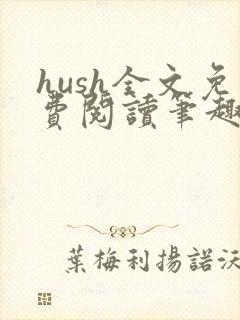 hush全文免
費閱讀筆趣
葉梅利揚諾沃